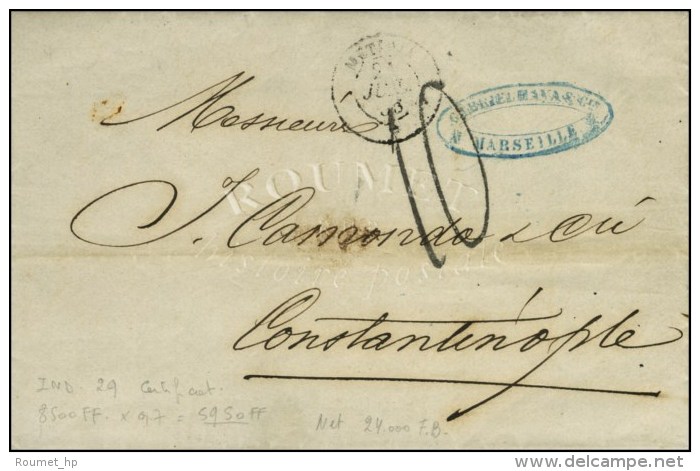 JUIL
GABRIEL MANAS & Cie
MARSEILLE
10
Messieurs
ROUMET
J. Camondo & Cie
histoire postale
Constantinople
IND. 29 Certificat.
8500 FF. x 0,7 = 5950 FF
Net 24.000 F.B.
Roumet_hp
www.delcampe.net